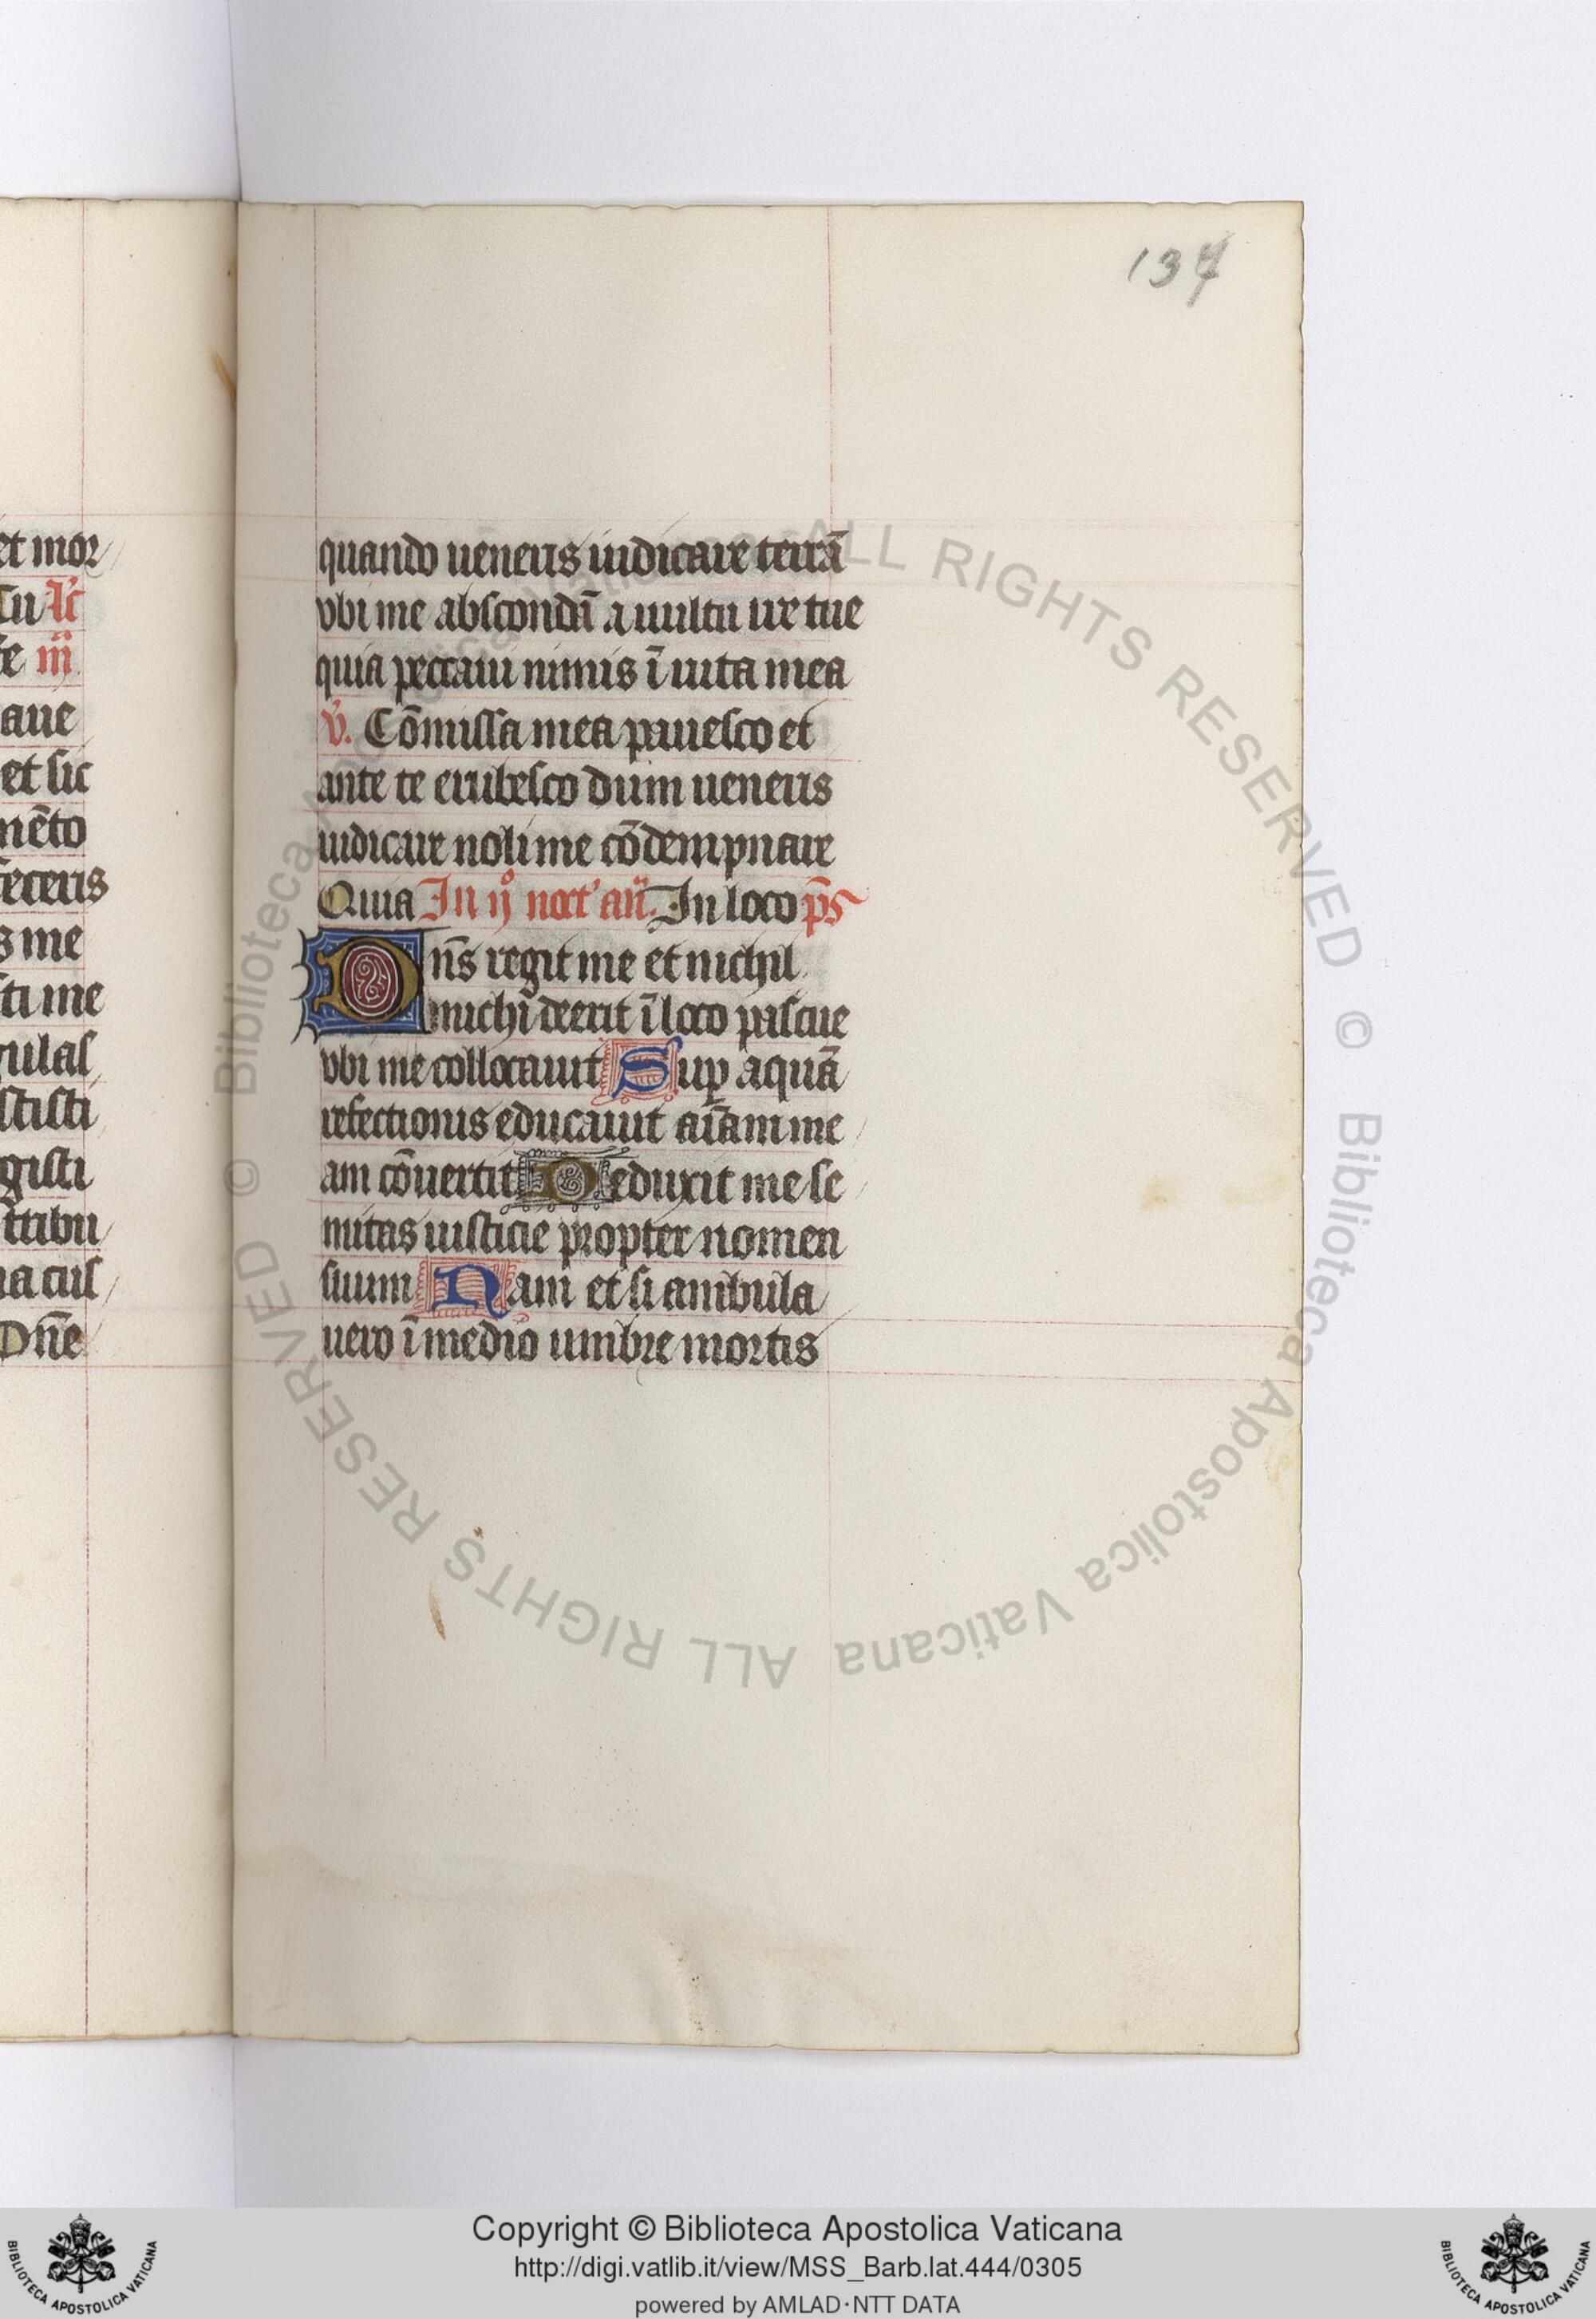 137
et mor
Tu
te iii
aue
et sic
nēto
feceris
s me
sti me
gulas
stisti
gisti
ttibu
ia cus
Dñe
quando ueneris iudicare terrā
vbi me abscondā a uultu ire tue
quia peccaui nimis ī uita mea
v̄. Cōmissa mea pauesco et
ante te erubesco dum ueneris
iudicare noli me cōdempnare
Quia In ijº noct' añ. In loco p̄s
Dñs regit me et nichil
michi deerit ī loco pascue
vbi me collocauit Sup aquā
refectionis educauit aīam me
am cōuertit Deduxit me se
mitas iusticie propter nomen
suum Nam et si ambula
uero ī medio umbre mortis
© Biblioteca Apostolica Vaticana ALL RIGHTS RESERVED
© Biblioteca Apostolica Vaticana ALL RIGHTS RESERVED
Copyright © Biblioteca Apostolica Vaticana
http://digi.vatlib.it/view/MSS_Barb.lat.444/0305
powered by AMLAD·NTT DATA
BIBLIOTECA APOSTOLICA VATICANA
BIBLIOTECA APOSTOLICA VATICANA